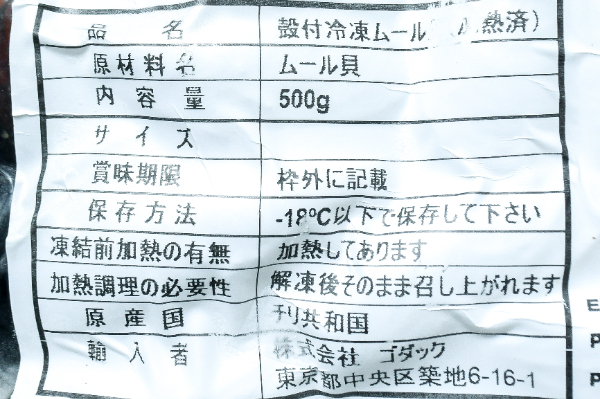 品名 殻付冷凍ムール 熱済）
原材料名 ムール貝
内容量 500g
サイズ
賞味期限 枠外に記載
保存方法 -18℃以下で保存して下さい
凍結前加熱の有無 加熱してあります
加熱調理の必要性 解凍後そのまま召し上がれます
原産国 チリ共和国
輸入者 株式会社 ゴダック
東京都中央区築地6-16-1
E
P
P